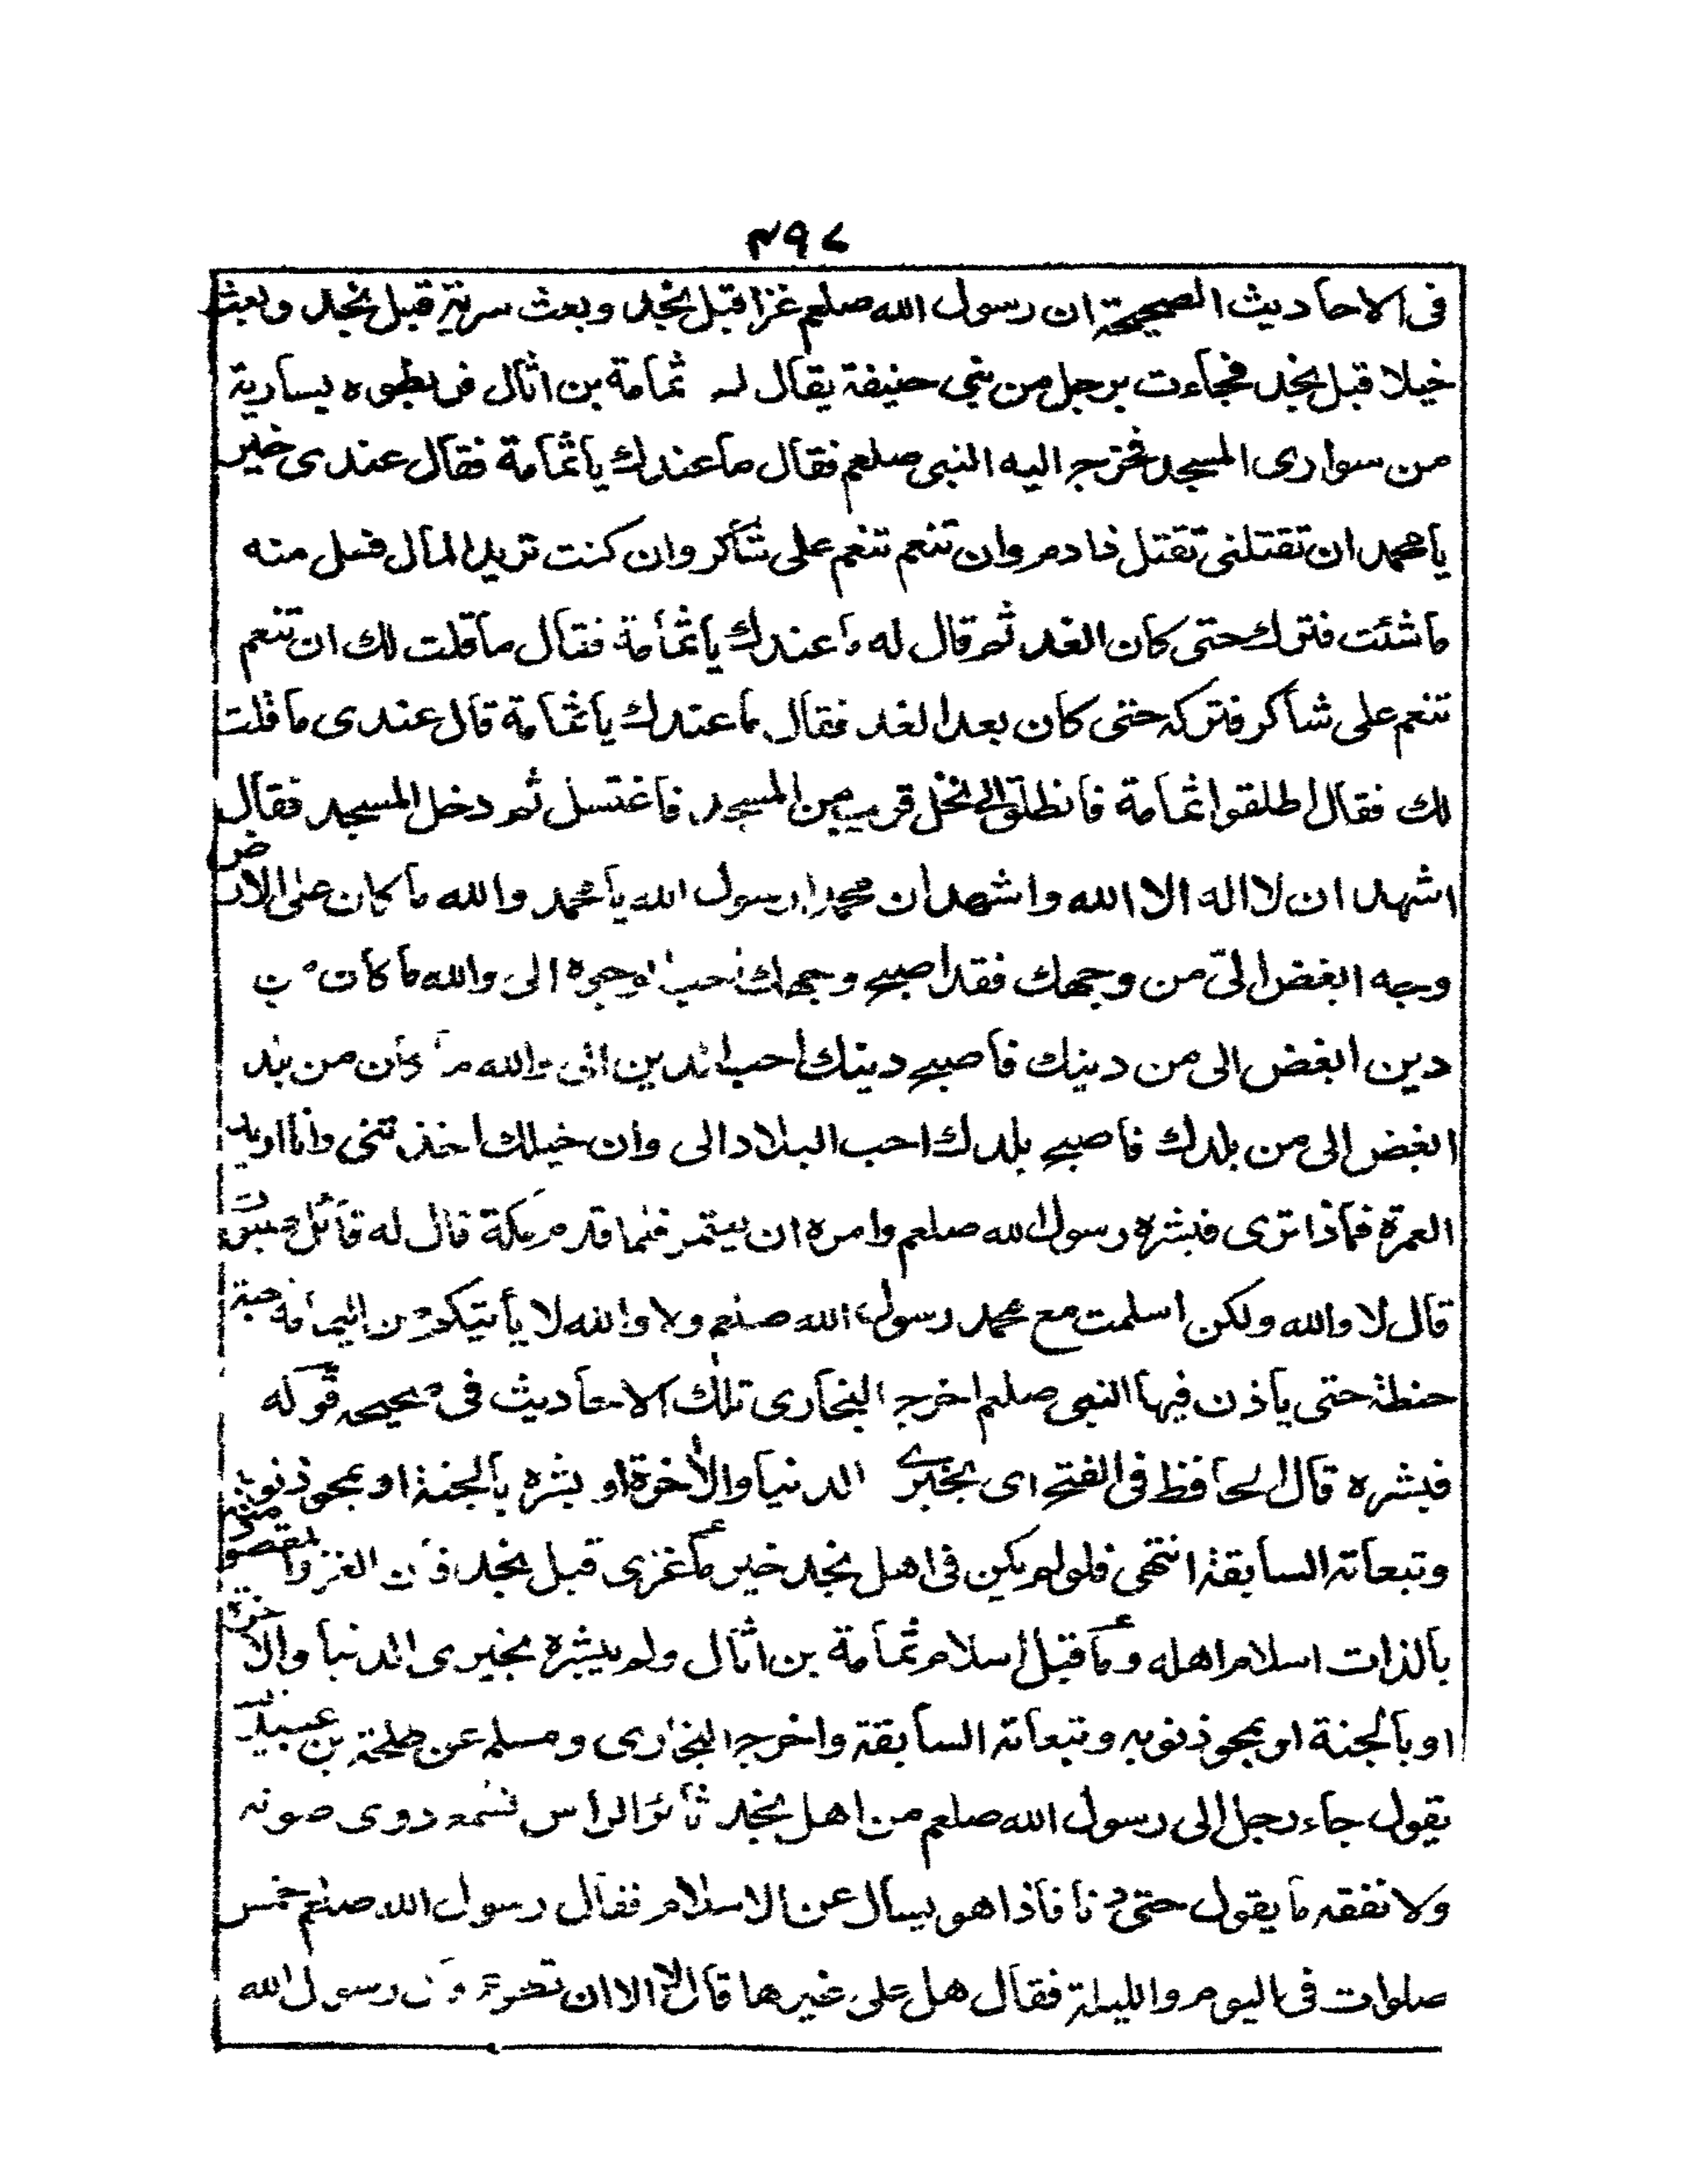 ٤٩٧
فى الاحاديث الصحيحة ان رسول الله صلعم غزا قبل نجد وبعث سرية قبل نجد وبعث
خيلا قبل نجد فجاءت برجل من بني حنيفة يقال له ثمامة بن اثال فربطوه بسارية
من سوارى المسجد فخرج اليه النبى صلعم فقال ما عندك يا ثمامة فقال عندى خير
يا محمد ان تقتلنى تقتل ذا دم وان تنعم تنعم على شاكر وان كنت تريد المال فسل منه
ما شئت فترك حتى كان الغد ثم قال له ما عندك يا ثمامة فقال ما قلت لك ان تنعم
تنعم على شاكر فتركه حتى كان بعد الغد فقال ما عندك يا ثمامة قال عندى ما قلت
لك فقال اطلقوا ثمامة فانطلق الى نخل قريب من المسجد فاغتسل ثم دخل المسجد فقال
اشهد ان لا اله الا الله واشهد ان محمدا رسول الله يا محمد والله ما كان على الارض
وجه ابغض الىّ من وجهك فقد اصبح وجهك احب الوجوه الى والله ما كان من
دين ابغض الى من دينك فاصبح دينك احب الدين الى والله ما كان من بلد
ابغض الى من بلدك فاصبح بلدك احب البلاد الى وان خيلك اخذتنى وانا اريد
العمرة فماذا ترى فبشره رسول الله صلعم وامره ان يعتمر فلما قدم مكة قال له قائل صبوت
قال لا والله ولكن اسلمت مع محمد رسول الله صلعم ولا والله لا يأتيكم من اليمامة حبة
حنطة حتى ياذن فيها النبى صلعم اخرج البخارى تلك الاحاديث فى صحيحه قوله
فبشره قال الحافظ فى الفتح اى بخيرى الدنيا والاخرة او بشره بالجنة او بمحو ذنوبه
وتبعاته السابقة انتهى فلو لم يكن فى اهل نجد خير ما غزى قبل نجد فان الغزو المقصود منه
بالذات اسلام اهله وما قبل اسلام ثمامة بن اثال ولم يبشره بخيرى الدنيا والاخرة
او بالجنة او بمحو ذنوبه وتبعاته السابقة واخرج البخارى ومسلم عن طلحة بن عبيد الله
يقول جاء رجل الى رسول الله صلعم من اهل نجد ثائر الراس نسمع دوى صوته
ولا نفقه ما يقول حتى دنا فاذا هو يسال عن الاسلام فقال رسول الله صلعم خمس
صلوات فى اليوم والليلة فقال هل على غيرها قال لا الا ان تطوع رسول الله